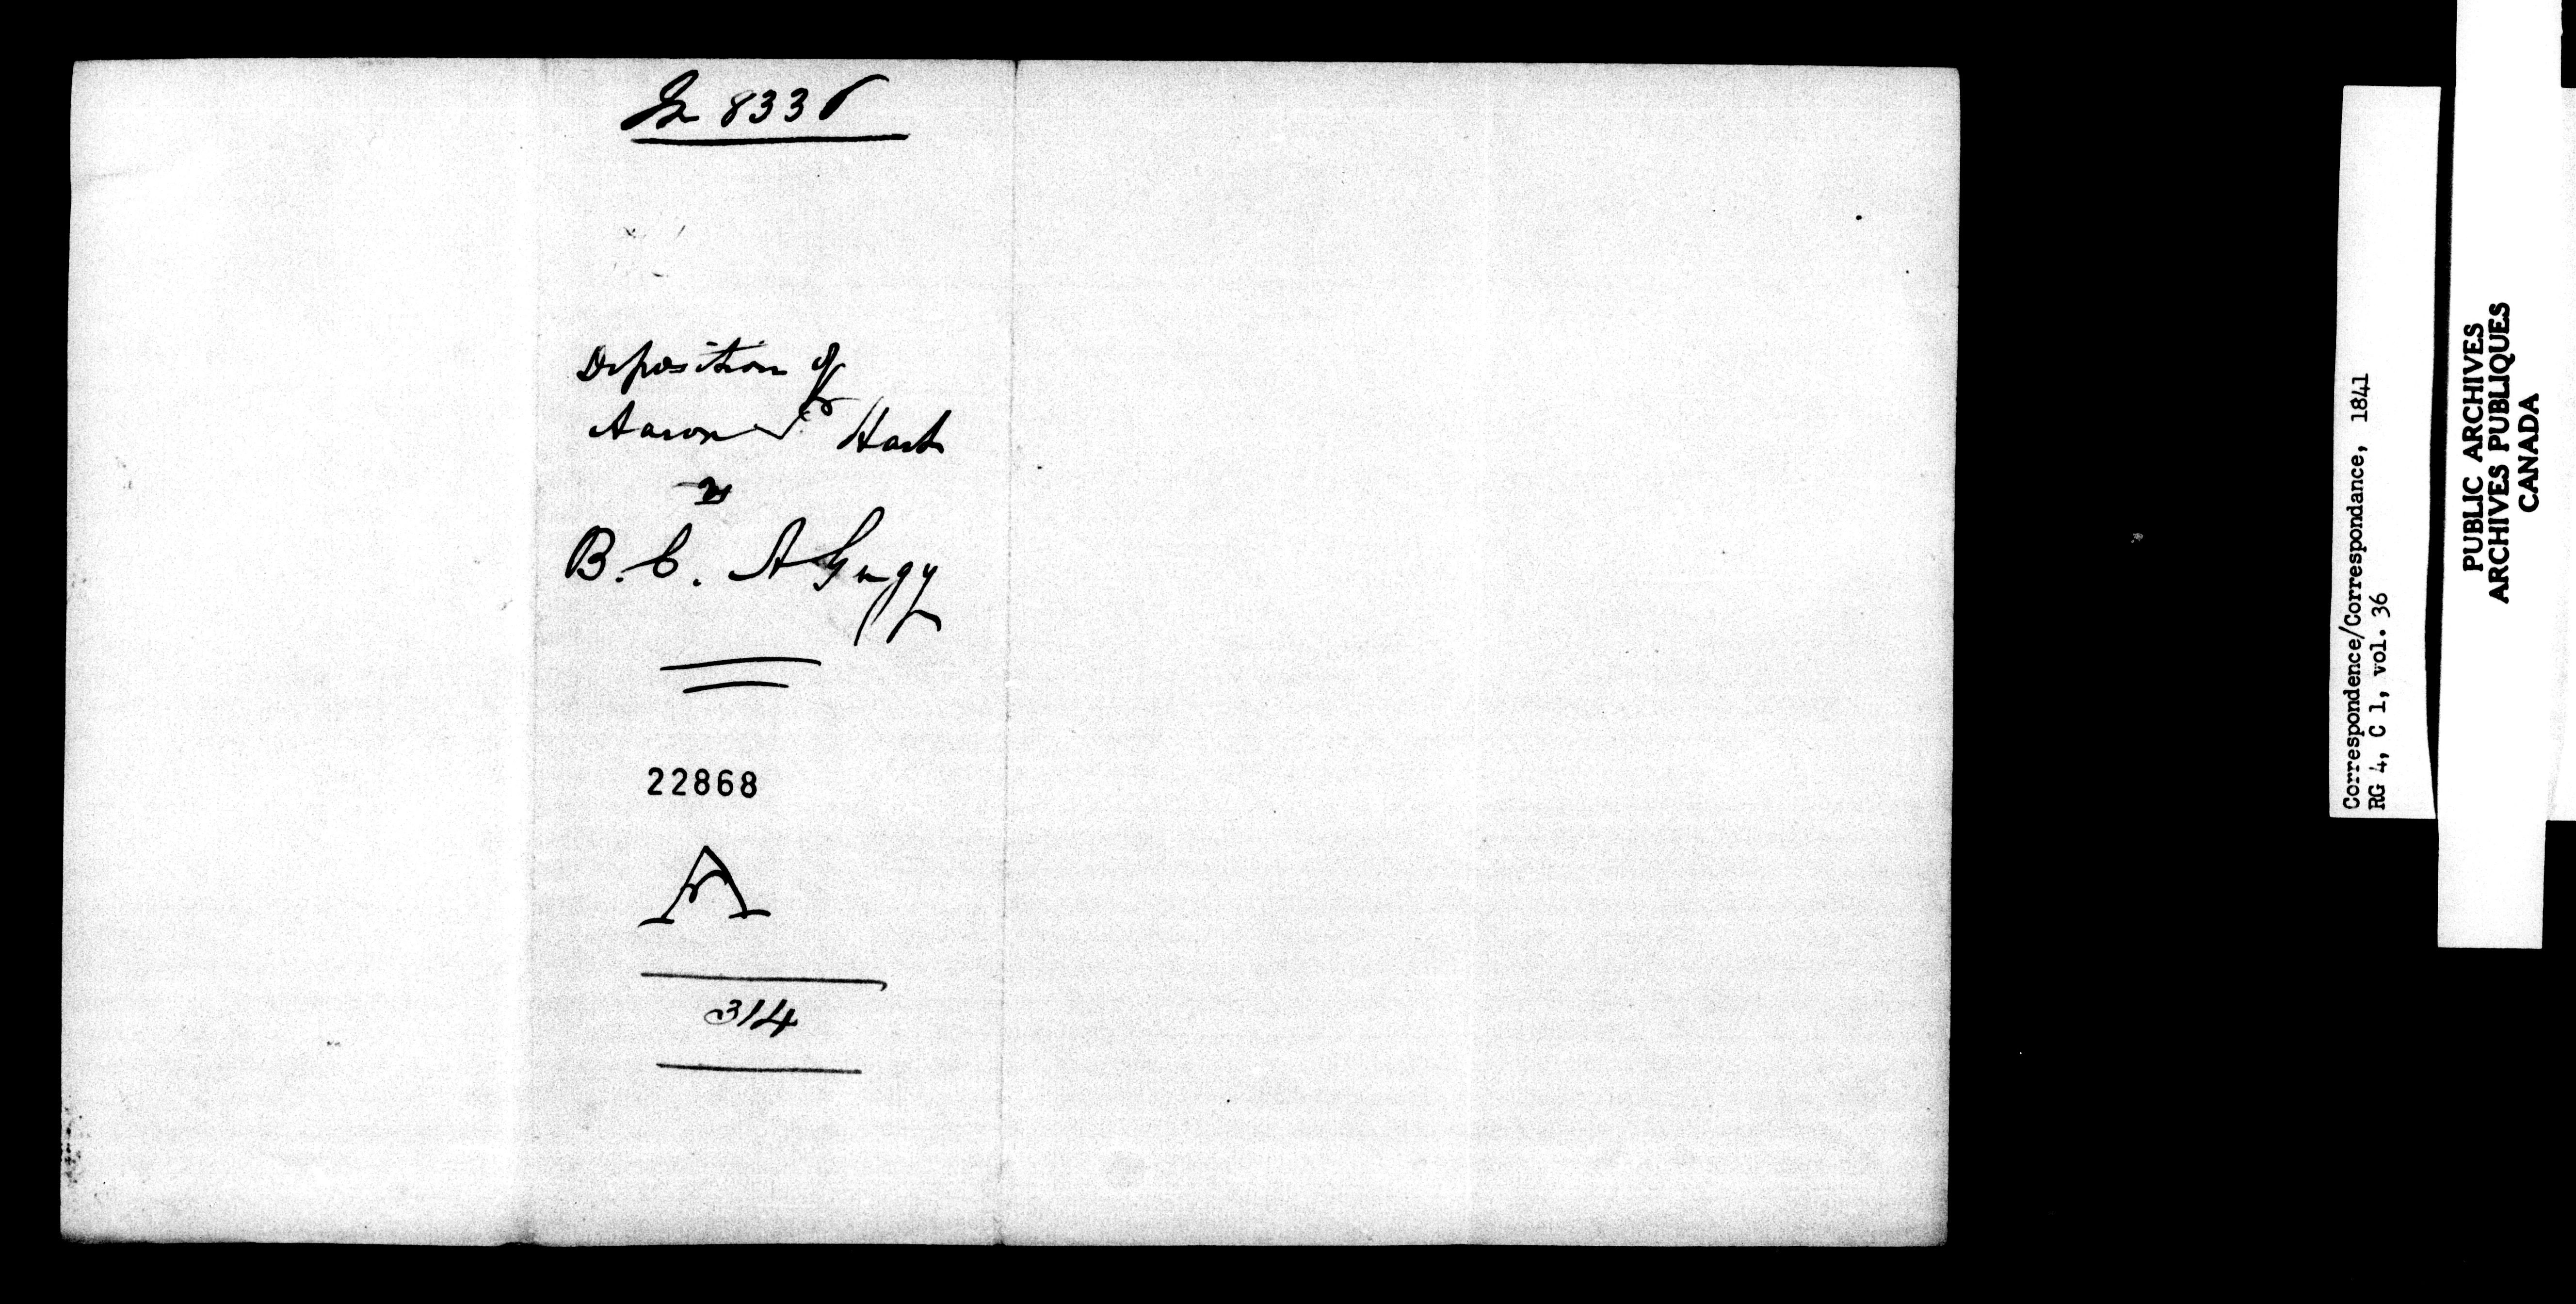 In 8336
Deposition of
Aaron Hart
vs
B. C. A Gugy
22868
A
314
Correspondence/Correspondance, 1841
RG 4, C 1, vol. 36
PUBLIC ARCHIVES
ARCHIVES PUBLIQUES
CANADA